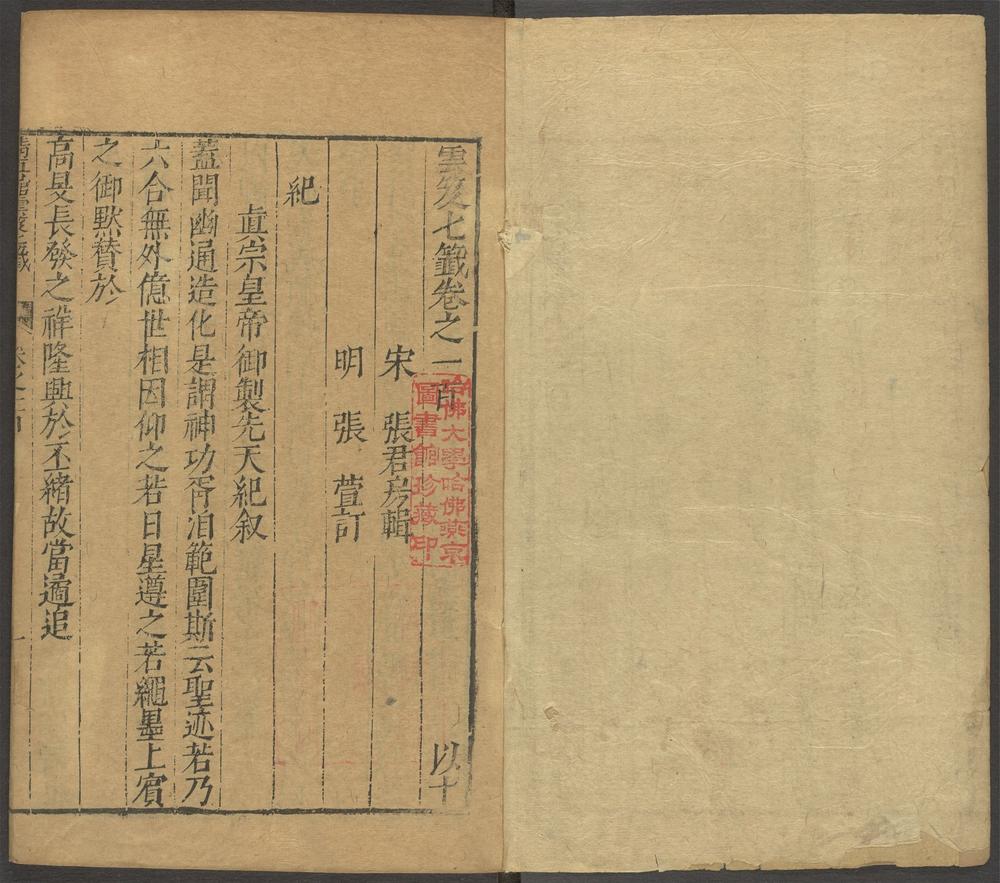 雲笈七籤卷之一百
以十
宋 張君房輯
明 張 萱訂
紀
真宗皇帝御製先天紀叙
蓋聞幽通造化是謂神功胥洎範圍斯云聖迹若乃
六合無外億世相因仰之若日星遵之若繩墨上賓
之御默贊於
高旻長發之祥隆興於丕緒故當遹追
一
哈佛大學哈佛燕京
圖書館珍藏印